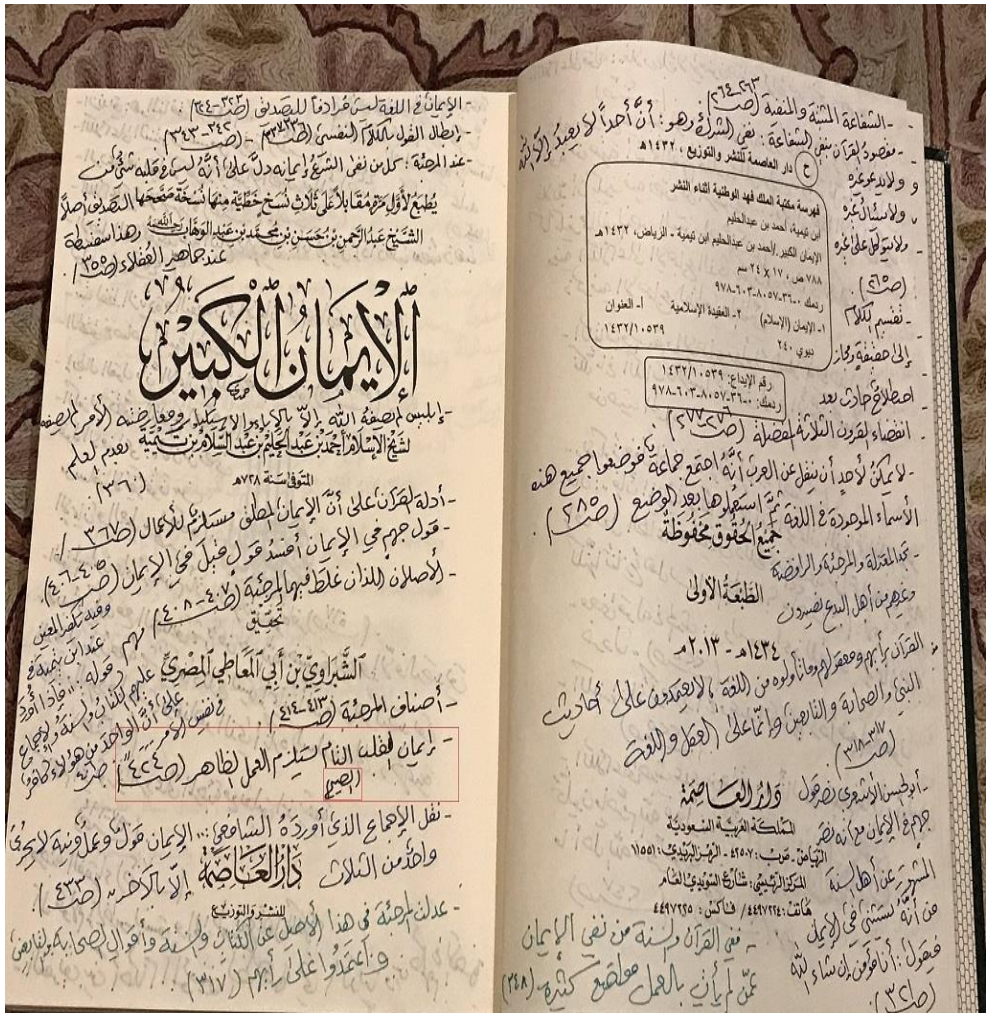 - الشفاعة المثبتة والمنفية (ص ٢٦٣-٢٦٤)
- مقصود القرآن بنفي الشفاعة: نفي الشرك وهو: أنَّ أحداً لا يعبد إلا الله
و ولا يدعو غيره
ولا يسأل غيره
ولا يتوكل على غيره
(ص ٢٦٥).
ح دار العاصمة للنشر والتوزيع، ١٤٣٢هـ
فهرسة مكتبة الملك فهد الوطنية أثناء النشر
ابن تيمية، أحمد بن عبدالحليم
الإيمان الكبير./ أحمد بن عبدالحليم ابن تيمية - الرياض، ١٤٣٢هـ
٧٨٨ ص، ١٧ × ٢٤ سم
ردمك ٠-٣٦-٨٠٥٧-٦٠٣-٩٧٨
١- الإيمان (الإسلام) ٢- العقيدة الإسلامية أ- العنوان
ديوي ٢٤٠ ١٤٣٢/١٠٥٣٩
رقم الإيداع: ١٤٣٢/١٠٥٣٩
ردمك: ٠-٣٦-٨٠٥٧-٦٠٣-٩٧٨
- تقسيم الكلام
إلى حقيقة ومجاز
اصطلاح حادث بعد
انقضاء القرون الثلاثة المفضلة (ص ٢٧٦-٢٧٧).
- لا يمكن لأحدٍ أن ينقل عن العرب أنَّهُ اجتمع جماعة فوضعوا جميع هذه
الأسماء الموجودة في اللغة ثمَّ استعملوها بعد الوضع (ص ٢٨٥).
جَمِيعُ الحُقُوقِ مَحْفُوظَة
الطَّبْعَةُ الأُولى
١٤٣٤هـ - ٢٠١٣م
- تجد المعتزلة والمرجئة والرافضة
وغيرهم من أهل البدع يفسرون
القرآن برأيهم ومعقولهم وما تأولوه من اللغة، لا يعتمدون على أحاديث
النبي والصحابة والتابعين وإنَّما على العقل واللغة
(ص ٣١٧-٣١٨)
- أبو الحسن الأشعري نصر قول
جهم في الإيمان مع أنه نصر
المشهور عن أهل السنة
من أنَّه يستثني في الإيمان
فيقول: أنا مؤمن إن شاء الله
(ص ٣٢١).
دَارُ العَاصِمَة
المملكة العربية السعودية
الرياض - ص ب: ٤٢٥٠٧ - الرمز البريدي: ١١٥٥١
المركز الرئيسي: شارع السويدي العام
هاتف: ٤٤٩٧٢٢٤ / فاكس: ٤٤٩٧٢٢٥
- ففي القرآن والسنة من نفي الإيمان
عمَّن لم يأتِ بالعمل مواضع كثيرة (٣٤٨)
- الإيمان في اللغة ليس مُرادفاً للتصديق (ص ٣٢٣-٣٢٤).
- إبطال القول بالكلام النفسي (ص) - (ص ٣٤٢-٣٤٣)
- عند المرجئة: كل من نفى الشرع إيمانه دلَّ على أنَّهُ ليس في قلبه شيءٌ من
التصديق أصلاً
وهذا سفسطة
عند جماهير العقلاء (ص ٣٥٥).
يُطبَعُ لأوَّلِ مَرَّةٍ مُقَابلاً عَلَى ثَلَاثِ نُسَخٍ خَطِّيَّةٍ مِنْهَا نُسْخَةٌ صَحَّحَهَا
الشَّيْخُ عَبْدُ الرَّحْمَنِ بْنُ حَسَنِ بْنِ مُحَمَّدِ بْنِ عَبْدِ الوَهَّابِ رحمه الله
٧٩
الإِيمَانُ الكَبِيْرُ
- إبليس لم يصفه الله إلاَّ بالإباء والاستكبار ومعارضته الأمر لم يصفه
بعدم العلم
(٣٦٠)
لشَيْخِ الإسْلَامِ أَحْمَدَ بْنِ عَبْدِ الحَلِيْمِ بْنِ عَبْدِ السَّلَامِ بْنِ تَيْمِيَّةَ
المتوفى سنة ٧٢٨هـ
- أدلة القرآن على أنَّ الإيمان المطلق مستلزمٌ للأعمال (ص ٣٦٧).
- قول جهم في الإيمان أفسد قول قيل في الإيمان (ص ٤٠٥-٤٠٦).
- الأصلان اللذان غلط فيهما المرجئة (ص ٤٠٧-٤٠٨)
تحقيق
الشَّبراويّ بْنِ أبي المعَاطي المِصْريِّ
وفيه تكفير المعين
عند ابن تيمية في
قوله: "فإذا أورد
عليهم الكتاب والسنة والإجماع
- أصناف المرجئة (ص ٤١٣-٤١٤)
- إيمان القلب التام يستلزم العمل الظاهر (ص ٤٢٤)
الصحيح
- نقل الإجماع الذي أوردَهُ الشافعي... الإيمان قولٌ وعملٌ ونية لا يجزئ
واحد من الثلاث إلاَّ بالآخر (ص ٤٣٣).
دَارُ العَاصِمَة
للنشر والتوزيع
- عدلت المرجئة في هذا الأصل عن الكتاب والسنة وأقوال الصحابة والتابعين
واعتمدوا على رأيهم (٣١٧)